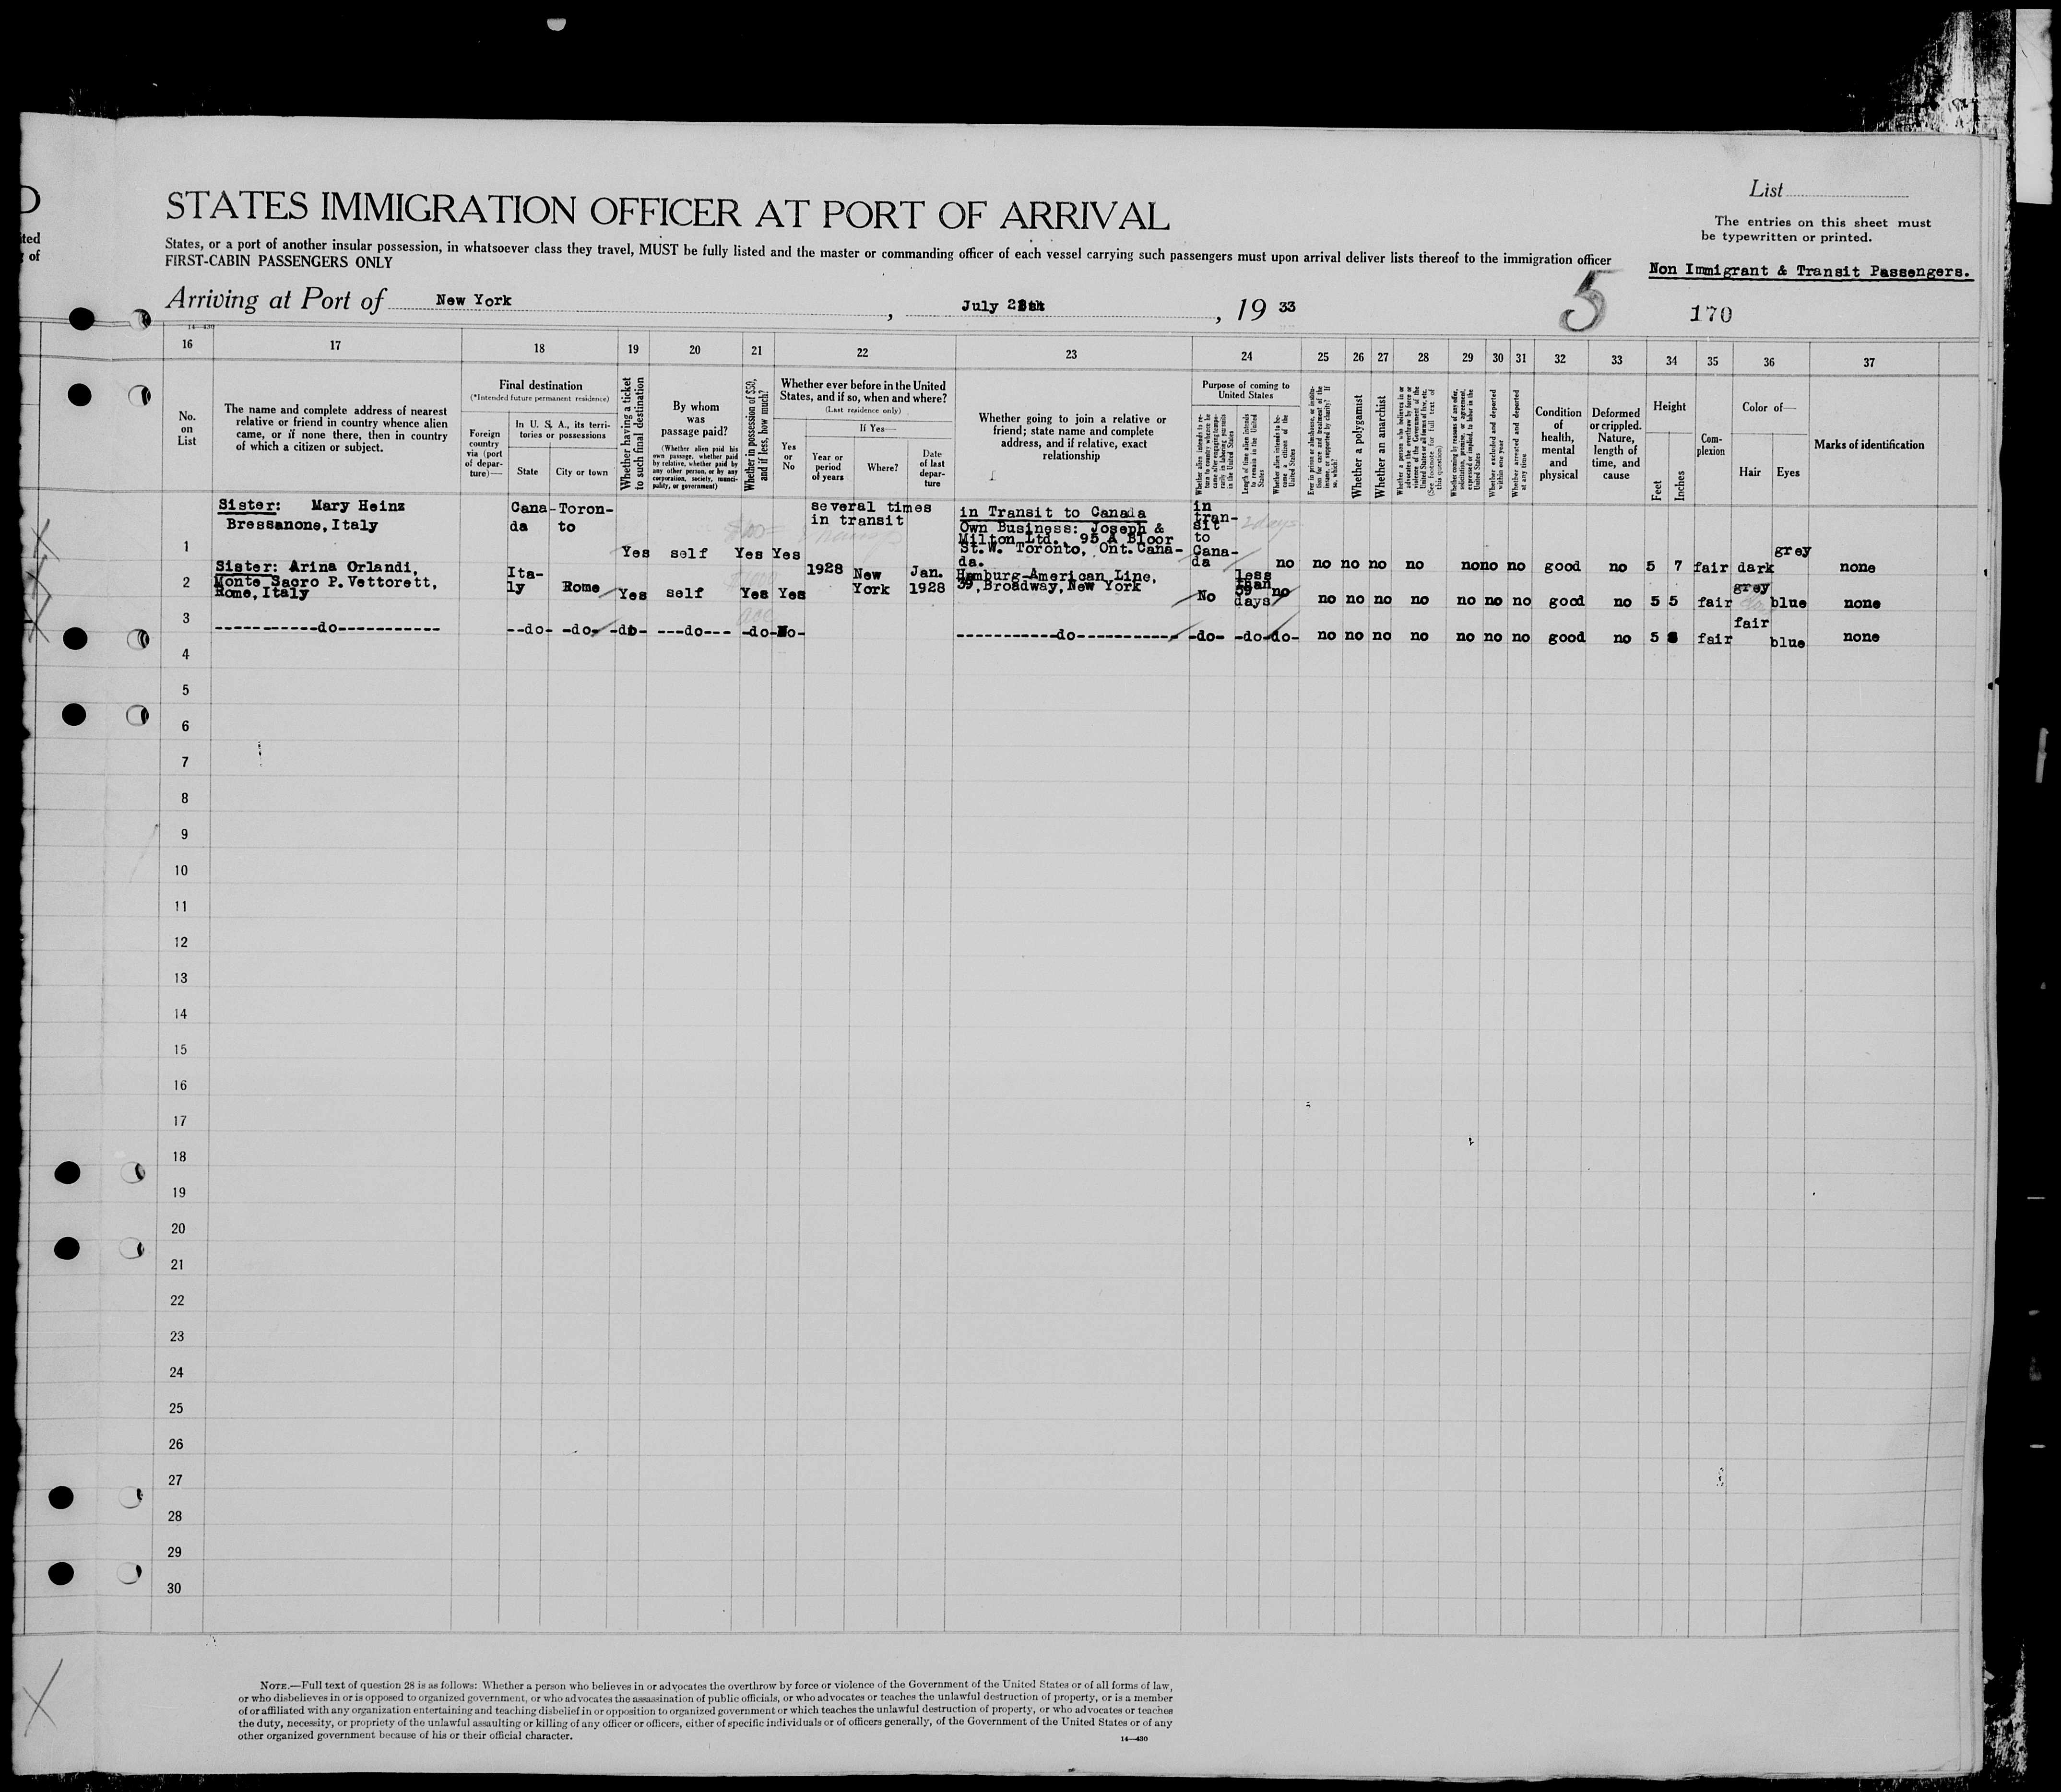 D
ted
of
STATES IMMIGRATION OFFICER AT PORT OF ARRIVAL
List
The entries on this sheet must
be typewritten or printed.
States, or a port of another insular possession, in whatsoever class they travel, MUST be fully listed and the master or commanding officer of each vessel carrying such passengers must upon arrival deliver lists thereof to the immigration officer
FIRST-CABIN PASSENGERS ONLY
Non Immigrant & Transit Passengers.
Arriving at Port of New York, July , 19 33
5
170
14—430
16 17 18 19 20 21 22 23 24 25 26 27 28 29 30 31 32 33 34 35 36 37
No. on List
The name and complete address of nearest relative or friend in country whence alien came, or if none there, then in country of which a citizen or subject.
Final destination
(*Intended future permanent residence)
Foreign country via (port of departure)—
In U. S. A., its territories or possessions
State
City or town
Whether having a ticket to such final destination
By whom was passage paid?
(Whether alien paid his own passage, whether paid by relative, whether paid by any other person, or by any corporation, society, municipality, or government)
Whether in possession of $50, and if less, how much?
Whether ever before in the United States, and if so, when and where?
(Last residence only)
Yes or No
If Yes—
Year or period of years
Where?
Date of last departure
Whether going to join a relative or friend; state name and complete address, and if relative, exact relationship
Purpose of coming to United States
Whether alien intends to return to country whence he came after engaging temporarily in laboring pursuits in the United States
Length of time alien intends to remain in the United States
Whether alien intends to become a citizen of the United States
Ever in prison or almshouse, or institution for care and treatment of the insane, or supported by charity? If so, which?
Whether a polygamist
Whether an anarchist
Whether a person who believes in or advocates the overthrow by force or violence of the Government of the United States or all forms of law, etc. (See footnote for full text of this question)
Whether coming by reasons of any offer, solicitation, promise, or agreement, expressed or implied, to labor in the United States
Whether excluded and deported within one year
Whether arrested and deported at any time
Condition of health, mental and physical
Deformed or crippled. Nature, length of time, and cause
Height
Feet
Inches
Complexion
Color of—
Hair
Eyes
Marks of identification
1 Sister: Mary Heinz
Bressanone, Italy
Cana-
da
Toron-
to
Yes self Yes Yes
several times
in transit
in Transit to Canada
Own Business: Joseph &
Milton Ltd., 95 A Bloor
St.W. Toronto, Ont. Cana-
da.
in
tran-
sit
to
Cana-
da
2 days
no no no no no no no no good no 5 7 fair dark grey none
2 Sister: Arina Orlandi,
Monte Sacro P. Vettorett,
Rome, Italy
Ita-
ly
Rome
Yes self Yes Yes
1928 New
York
Jan.
1928
Hamburg-American Line,
39, Broadway, New York
No
less
than
59
days
no no no no no no no no good no 5 5 fair grey blue none
3 -----------do-----------
--do- -do- -do- ---do--- -do- No-
-----------do-----------
-do- -do- do- no no no no no no no good no 5 fair fair blue none
4
5
6
7
8
9
10
11
12
13
14
15
16
17
18
19
20
21
22
23
24
25
26
27
28
29
30
NOTE.—Full text of question 28 is as follows: Whether a person who believes in or advocates the overthrow by force or violence of the Government of the United States or of all forms of law,
or who disbelieves in or is opposed to organized government, or who advocates the assassination of public officials, or who advocates or teaches the unlawful destruction of property, or is a member
of or affiliated with any organization entertaining and teaching disbelief in or opposition to organized government or which teaches the unlawful destruction of property, or who advocates or teaches
the duty, necessity, or propriety of the unlawful assaulting or killing of any officer or officers, either of specific individuals or of officers generally, of the Government of the United States or of any
other organized government because of his or their official character.
14—430